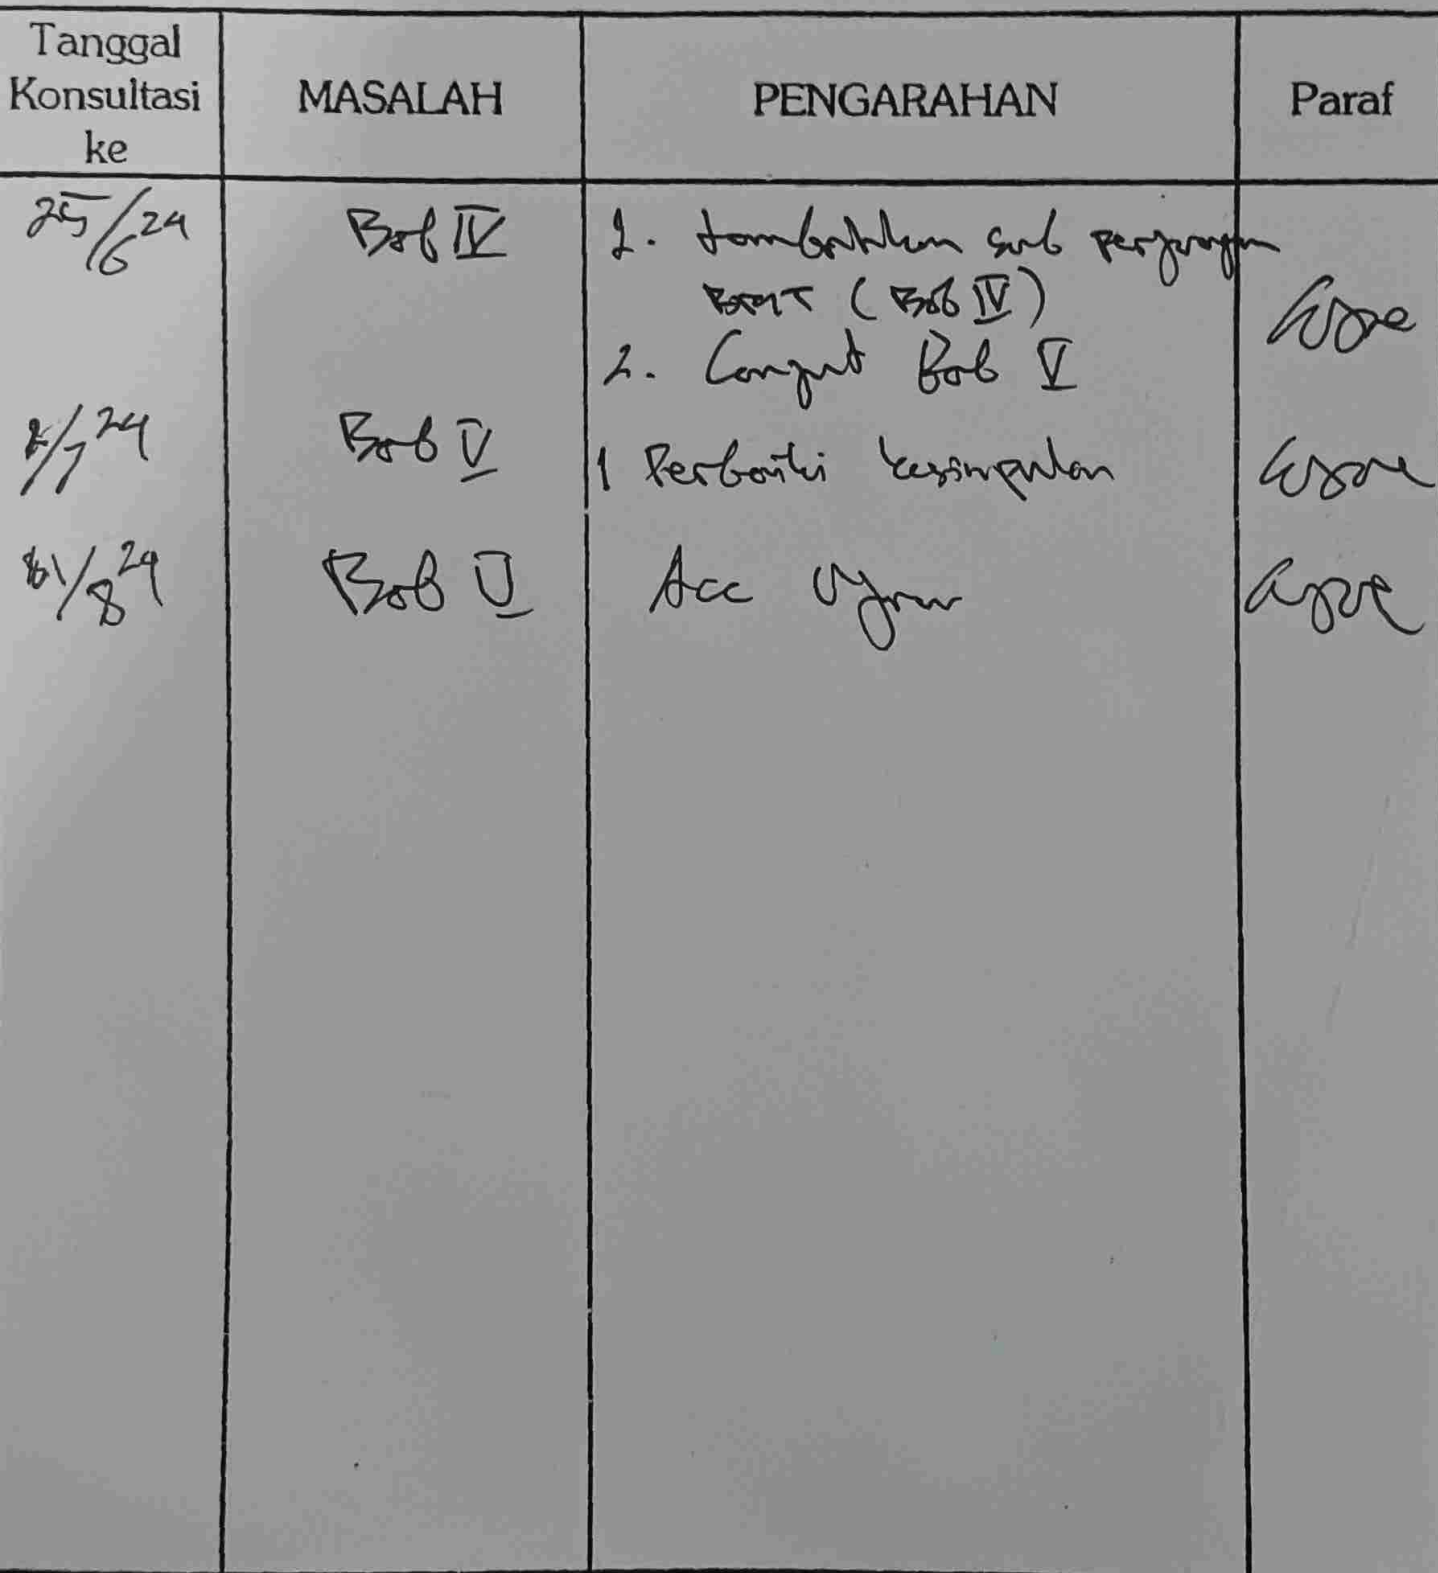 Tanggal Konsultasi ke
MASALAH
PENGARAHAN
Paraf
25/6 24
Bab IV
1. tambahkan sub
(Bab IV)
2. Lanjut Bab V
/7 24
Bab V
1 Perbaiki kesimpulan
/8 24
Bab V
Acc Ujian